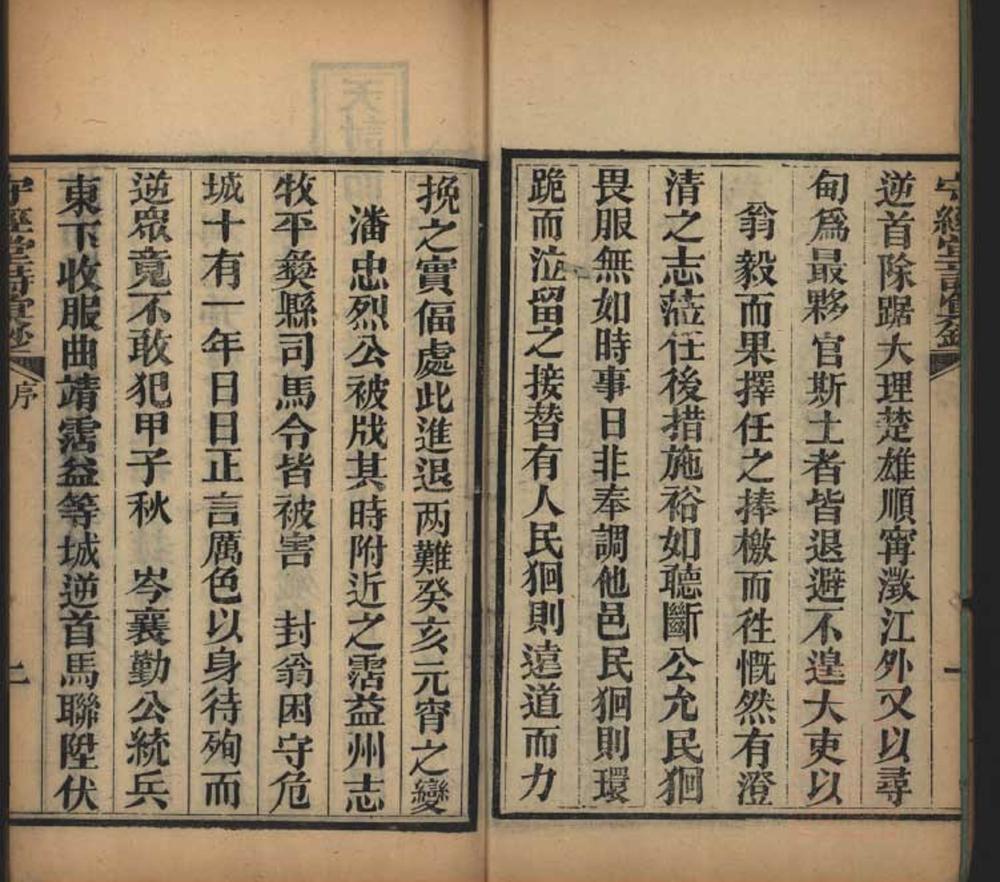 逆首除踞大理楚雄順寧澂江外又以尋
甸為最夥 官斯土者皆退避不遑大吏以
翁毅而果擇任之捧檄而徃慨然有澄
清之志蒞任後措施裕如聽斷公允民狪
畏服無如時事日非奉調他邑民狪則環
跪而泣留之接替有人民狪則遠道而力
挽之實偪處此進退两難癸亥元宵之變
潘忠烈公被戕其時附近之霑益州志
牧平彜縣司馬令皆被害 封翁困守危
城十有一年日日正言厲色以身待殉而
逆眾竟不敢犯甲子秋 岑襄勤公統兵
東下收服曲靖霑益等城逆首馬聯陞伏
守經堂詩彙鈔
序